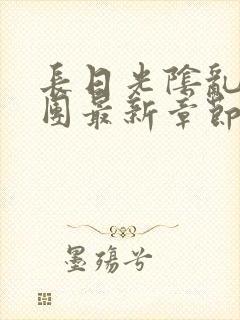 長日光陰亂
團最新章節
墨殤兮